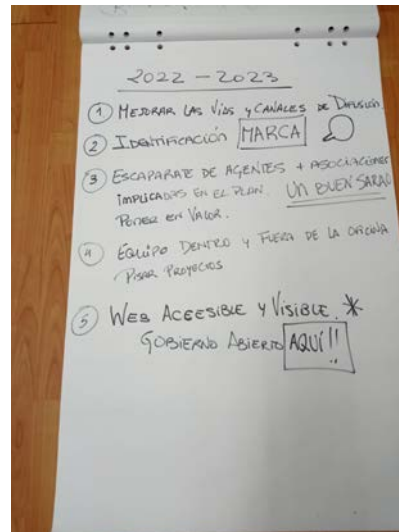 2022 - 2023
1 MEJORAR LAS VÍAS y CANALES DE DIFUSIÓN.
2 IDENTIFICACIÓN MARCA
3 ESCAPARATE DE AGENTES + ASOCIACIONES
IMPLICADAS EN EL PLAN. UN BUEN SARAO
PONER EN VALOR.
4 EQUIPO DENTRO Y FUERA DE LA OFICINA
PISAR PROYECTOS
5 WEB ACCESIBLE Y VISIBLE. *
GOBIERNO ABIERTO AQUÍ!!